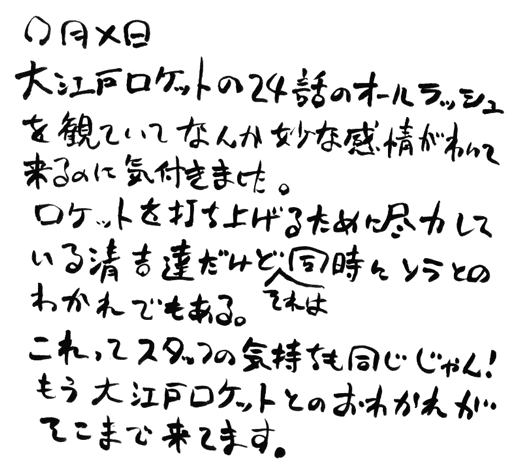 〇月×日
大江戸ロケットの24話のオールラッシュ
を観ていてなんか妙な感情がわいて
来るのに気付きました。
ロケットを打ち上げるために尽力して
いる清吉達だけど同時にソラとの
それは
わかれでもある。
これってスタッフの気持ちも同じじゃん!
もう大江戸ロケットとのおわかれが
そこまで来てます。